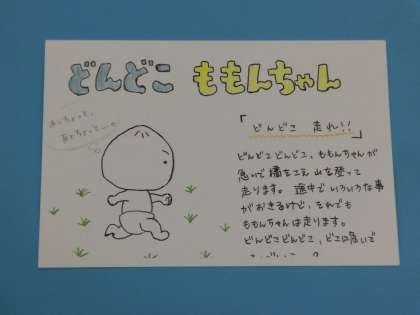 どんどこ ももんちゃん
「どんどこ 走れ!!」
どんどこどんどこ、ももんちゃんが
急いで橋をこえ山を登って
走ります。 途中でいろいろな事
がおきるけど、それでも
ももんちゃんは走ります。
どんどこどんどこ、どこに急いで